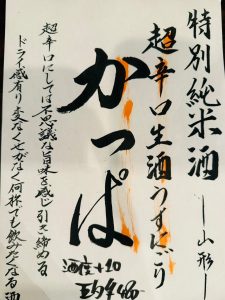 特別純米酒
―山形―
超辛口生酒うすにごり
かっぱ
酒度+20
超辛口にしては不思議な旨味を感じ引き締める
ドライ感有り変なクセがなく何杯でも飲みたくなる酒